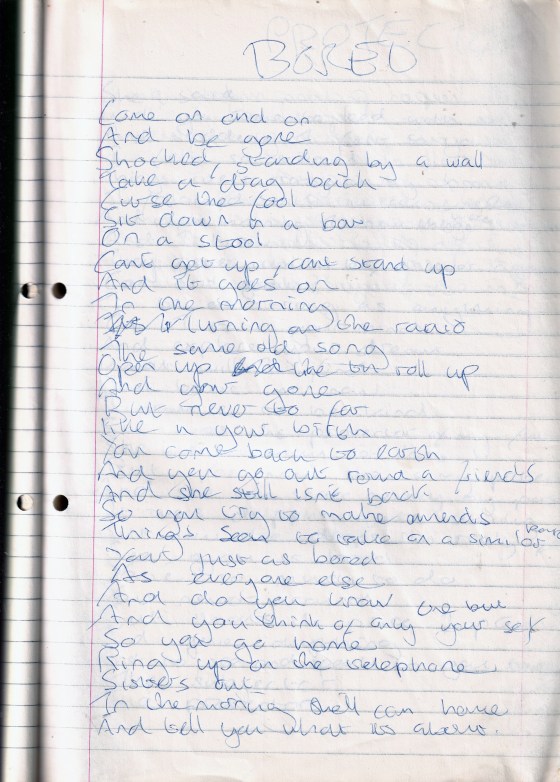 BORED
Come on and on
And be gone
Shocked, standing by a wall
Take a drag back
Curse the fool
Sit down in a bar
On a stool
Cant get up, cant stand up
And it goes on
In the morning
turning on the radio
The same old song
Open up the tin roll up
And your gone
But never to far
like n your birth
You come back to earth
And you go out round a friends
And she still isn't back
So you try to make amends
Things seem to take on a similar
Your just as bored
As everyone else
And do you know the
And you think of only your self
So you go home
Ring up on the telephone
Sisters out
In the morning shell com home
And tell you what its about.